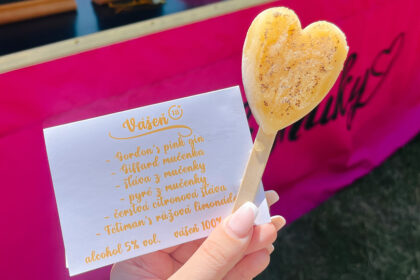 Vášeň 18
- Gordon's pink gin
- Giffard mučenka
- šťáva z mučenky
- pyré z mučenky
- čerstvá citronová šťáva
- Fetiman's růžová limonáda
alcohol 5% vol. vášeň 100%